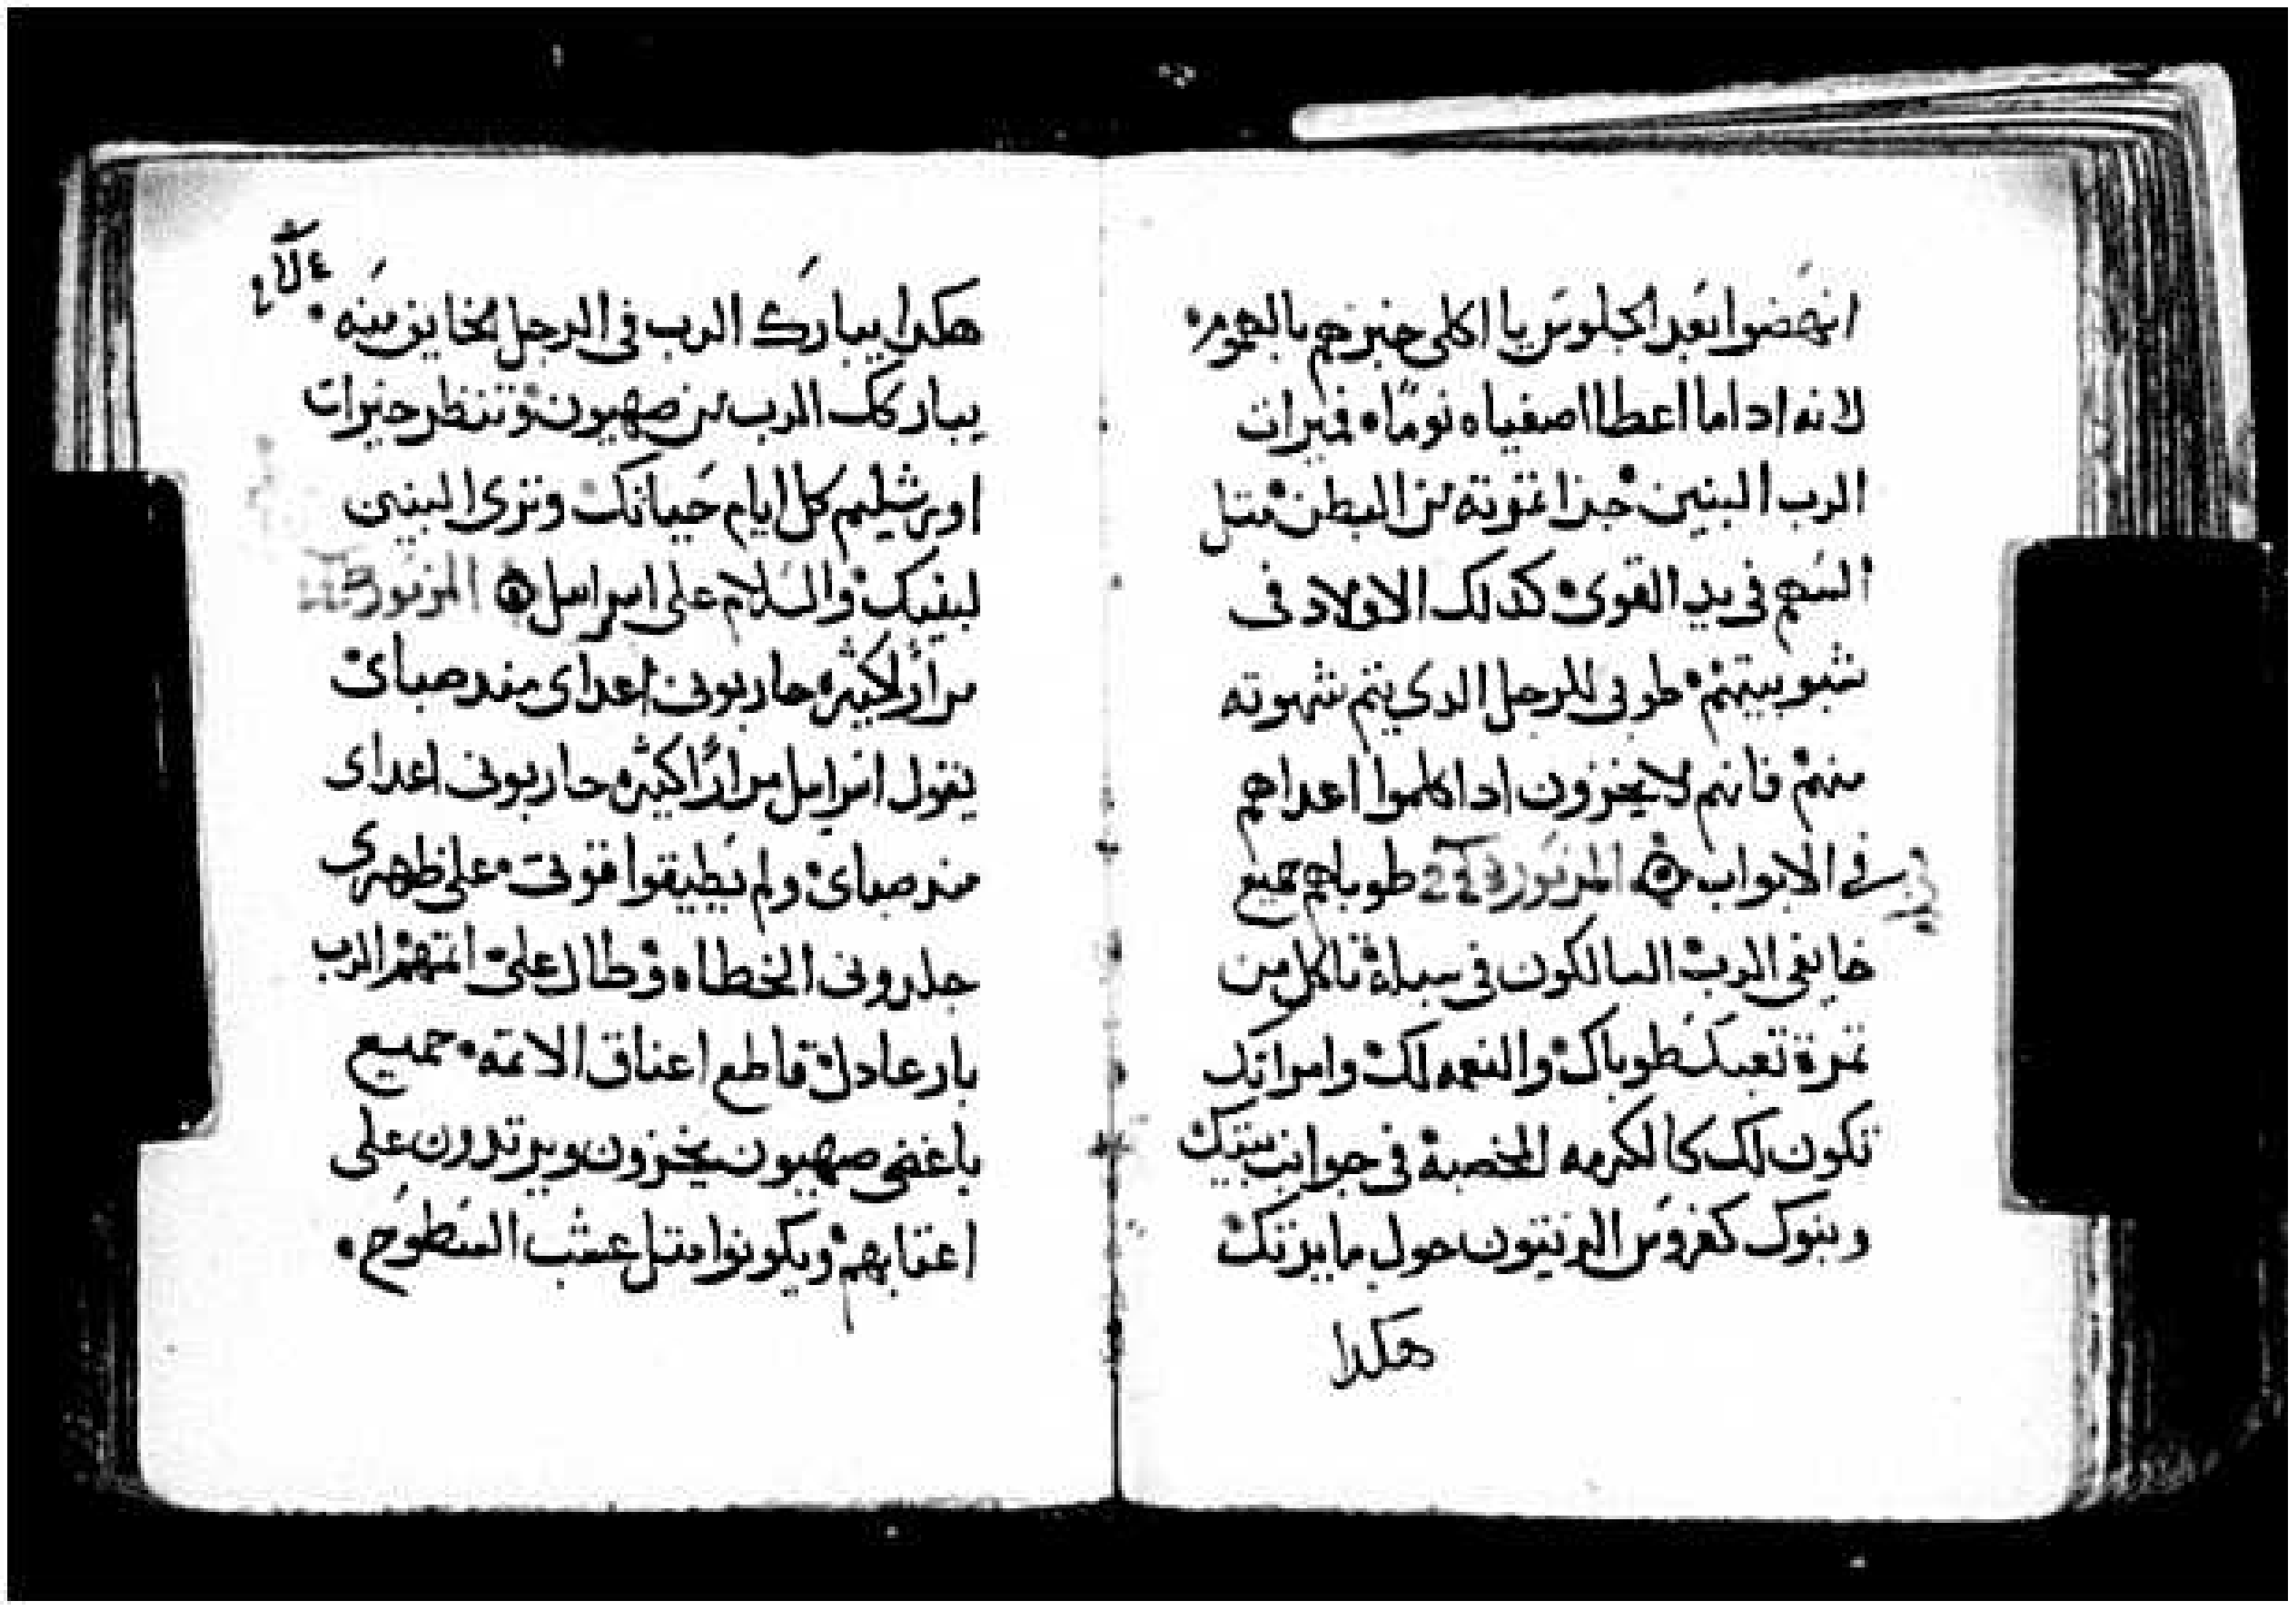 انهضوا بعد الجلوس يا اكلى خبزهم بالهموم
لانه ادا ما اعطا اصفياه نومًا فميرات
الرب البنين جزا تمرته من البطن متل
السهم فى يد القوى كدلك الاولاد فى
شبوبيتهم طوبى للرجل الدى يتم شهوته
منهم فانهم لا يخزون ادا كلموا اعداهم
فى الابواب المزمور طوباهم جميع
خايفى الرب السالكون فى سبله تاكل من
تمرة تعبك طوباك والنعمه لك وامراتك
تكون لك كالكرمه المخصبه فى جوانب بيتك
وبنوك كغروس الزيتون حول مايدتك
هكدا
هكدا يبارك الرب فى الرجل الخايف منه
يباركك الرب من صهيون وتنظر خيرات
اورشليم كل ايام حياتك وترى البنين
لبنيك والسلام على اسراييل المزمور
مرارًا كثيره حاربونى اعداى مند صباى
يقول اسراييل مرارًا كثيره حاربونى اعداى
مند صباى ولم يطيقوا قوتى على ظهرى
جلدونى الخطاه وطال على اتمهم الرب
بار عادل قاطع اعناق الاتمه جميع
باغضى صهيون يخزون ويرتدون على
اعقابهم ويكونوا متل عشب السطوح